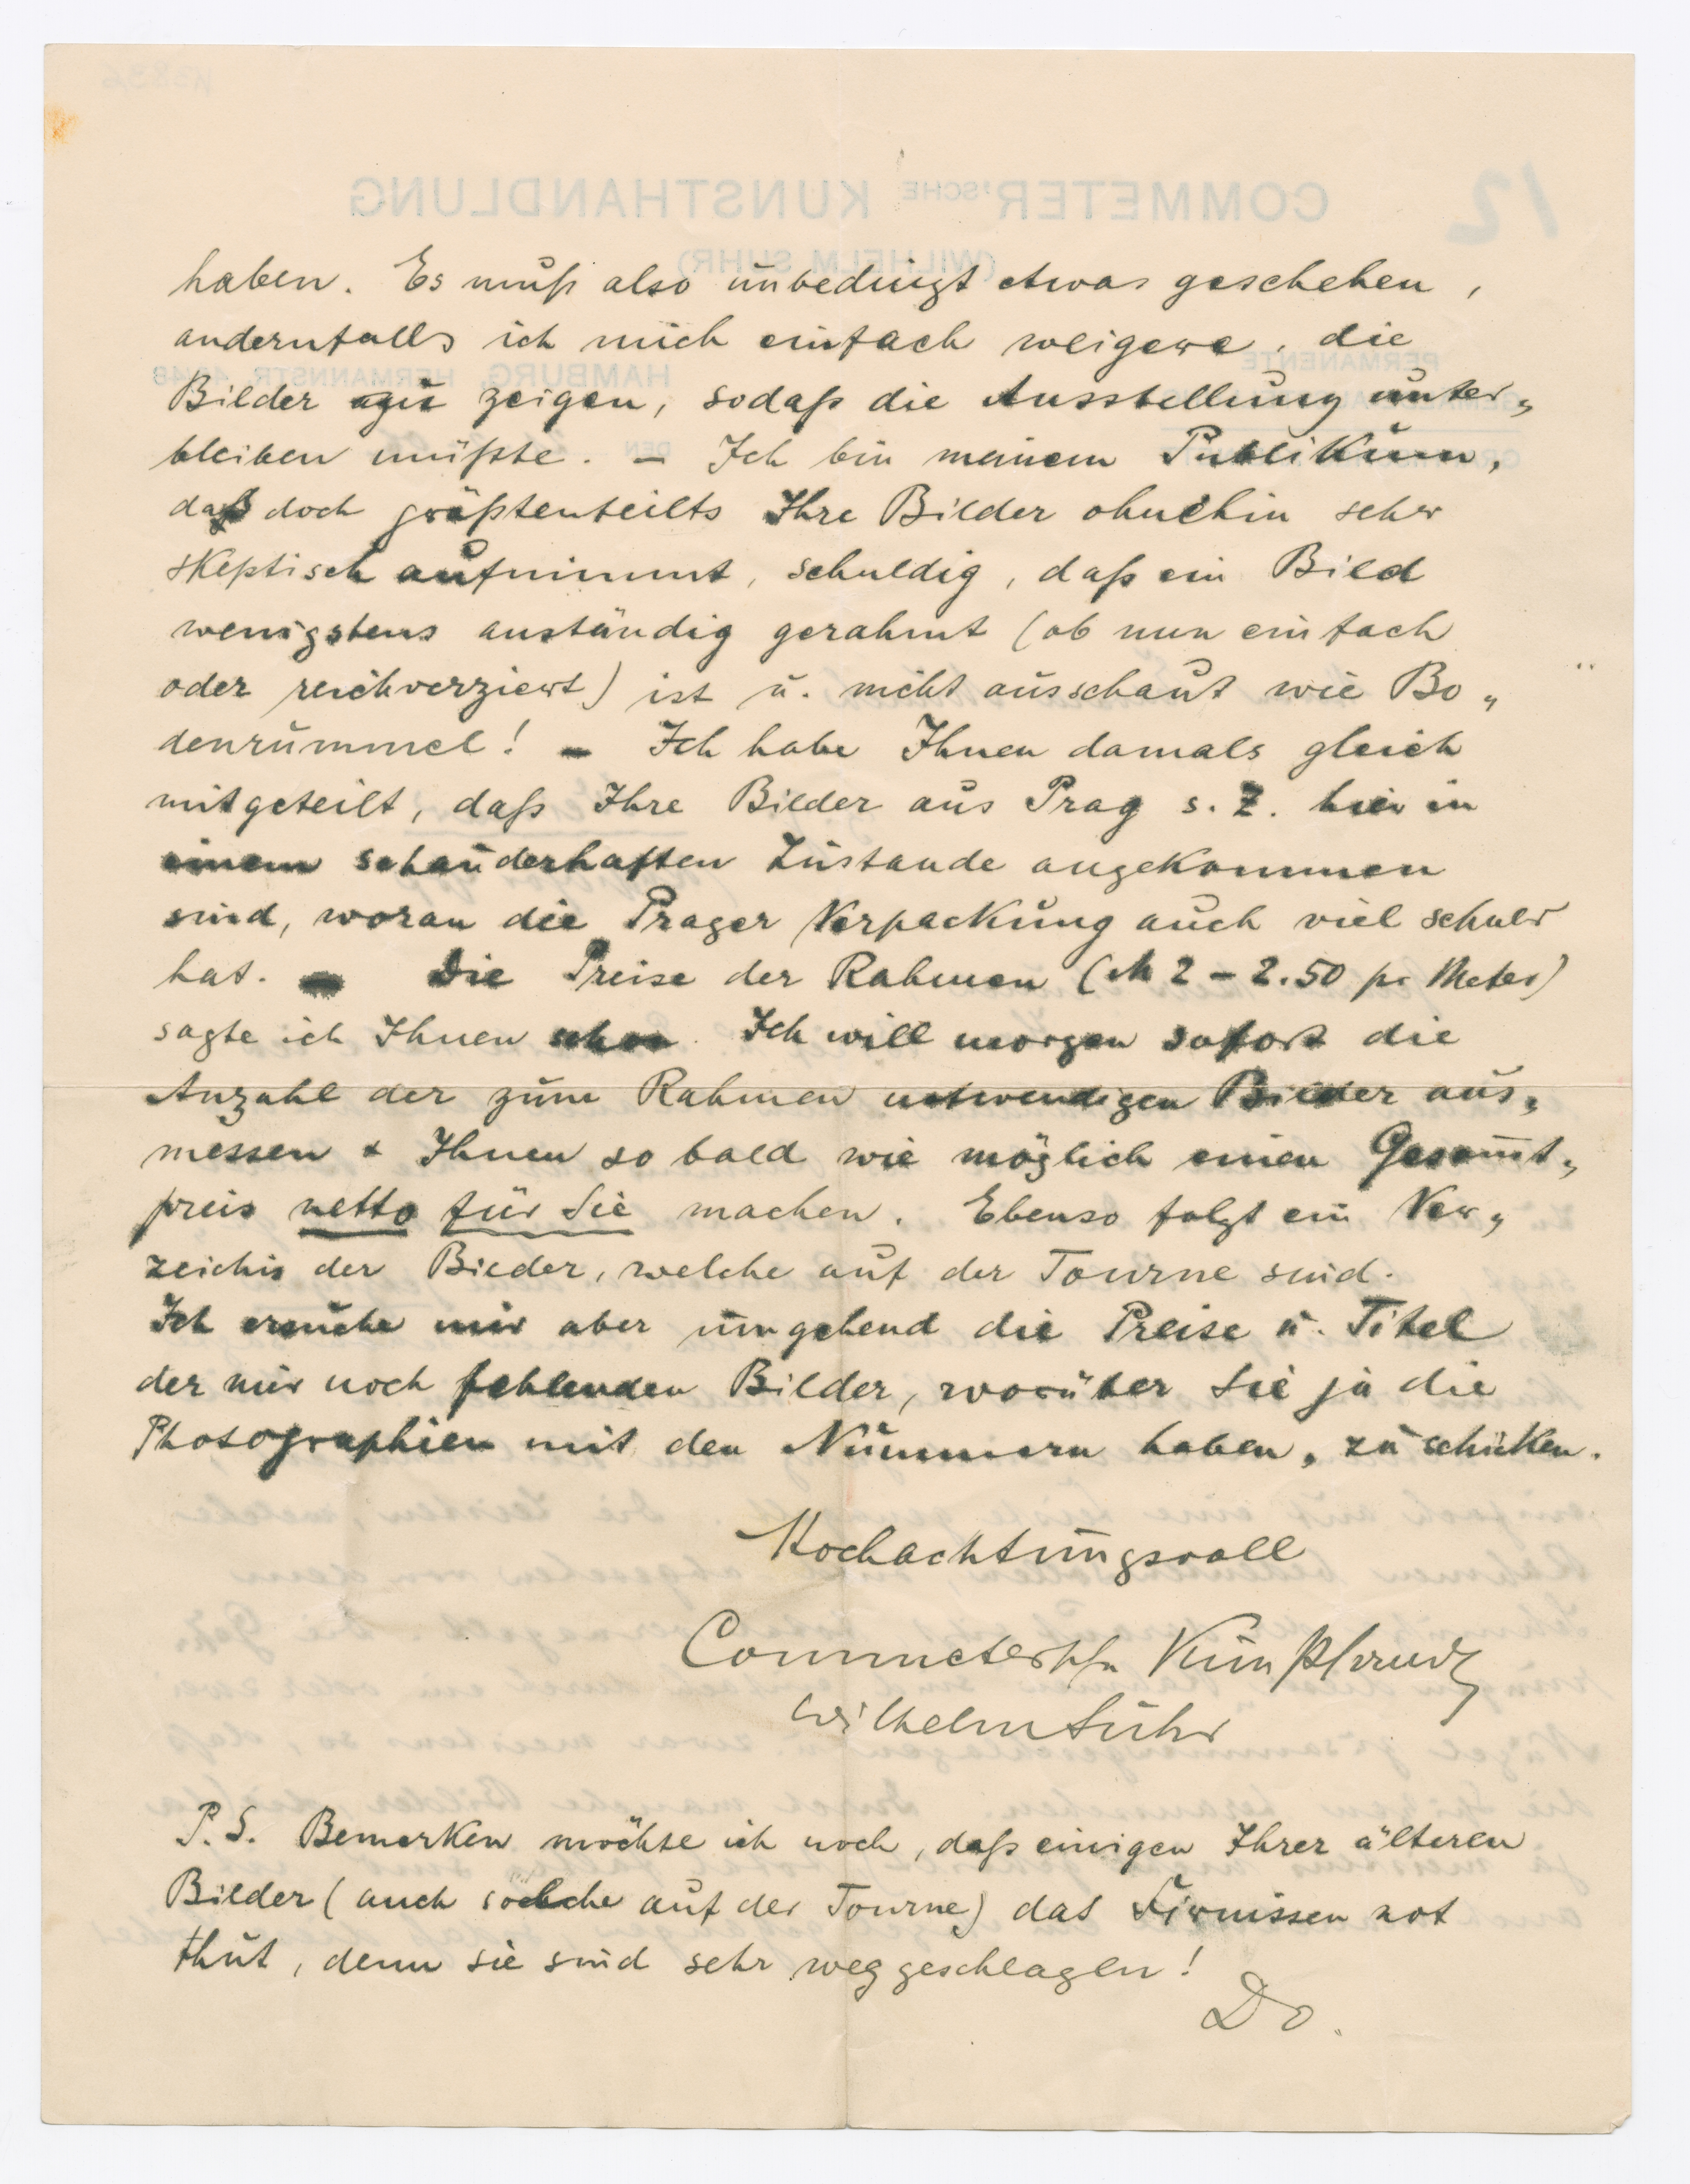 haben. Es muß also unbedingt etwas geschehen,
andernfalls ich mich einfach weigere, die
Bilder zu zeigen, sodaß die Ausstellung unter„
bleiben müßte. – Ich bin meinem Publikum,
daß doch größtenteilts Ihre Bilder ohnehin sehr
skeptisch aufnimmt, schuldig, daß ein Bild
wenigstens anständig gerahmt (ob nun einfach
oder reichverziert) ist u. nicht ausschaut wie Bo„
denrummel! – Ich habe Ihnen damals gleich
mitgeteilt, daß Ihre Bilder aus Prag s. Z. hier in
einem schauderhaften Zustande angekommen
sind, woran die Prager Verpackung auch viel schuld
hat. – Die Preise der Rahmen (M 2 – 2.50 pr Meter)
sagte ich Ihnen schon. Ich will morgen sofort die
Anzahl der zum Rahmen notwendigen Bilder aus„
messen & Ihnen so bald wie möglich einen Gesamt„
preis netto für Sie machen. Ebenso folgt ein Ver„
zeichis der Bilder, welche auf der Tourne sind.
Ich ersuche mir aber umgehend die Preise u. Titel
der mir noch fehlenden Bilder, worüber Sie ja die
Photographien mit den Nummern haben, zu schicken.
Hochachtungsvoll
Commeter'sche Kunsthandlg
Wilhelm Suhr
P.S. Bemerken möchte ich noch, daß einigen Ihrer älteren
Bilder (auch solche auf der Tourne) das Firnissen not
thut, denn sie sind sehr weggeschlagen!
Do.